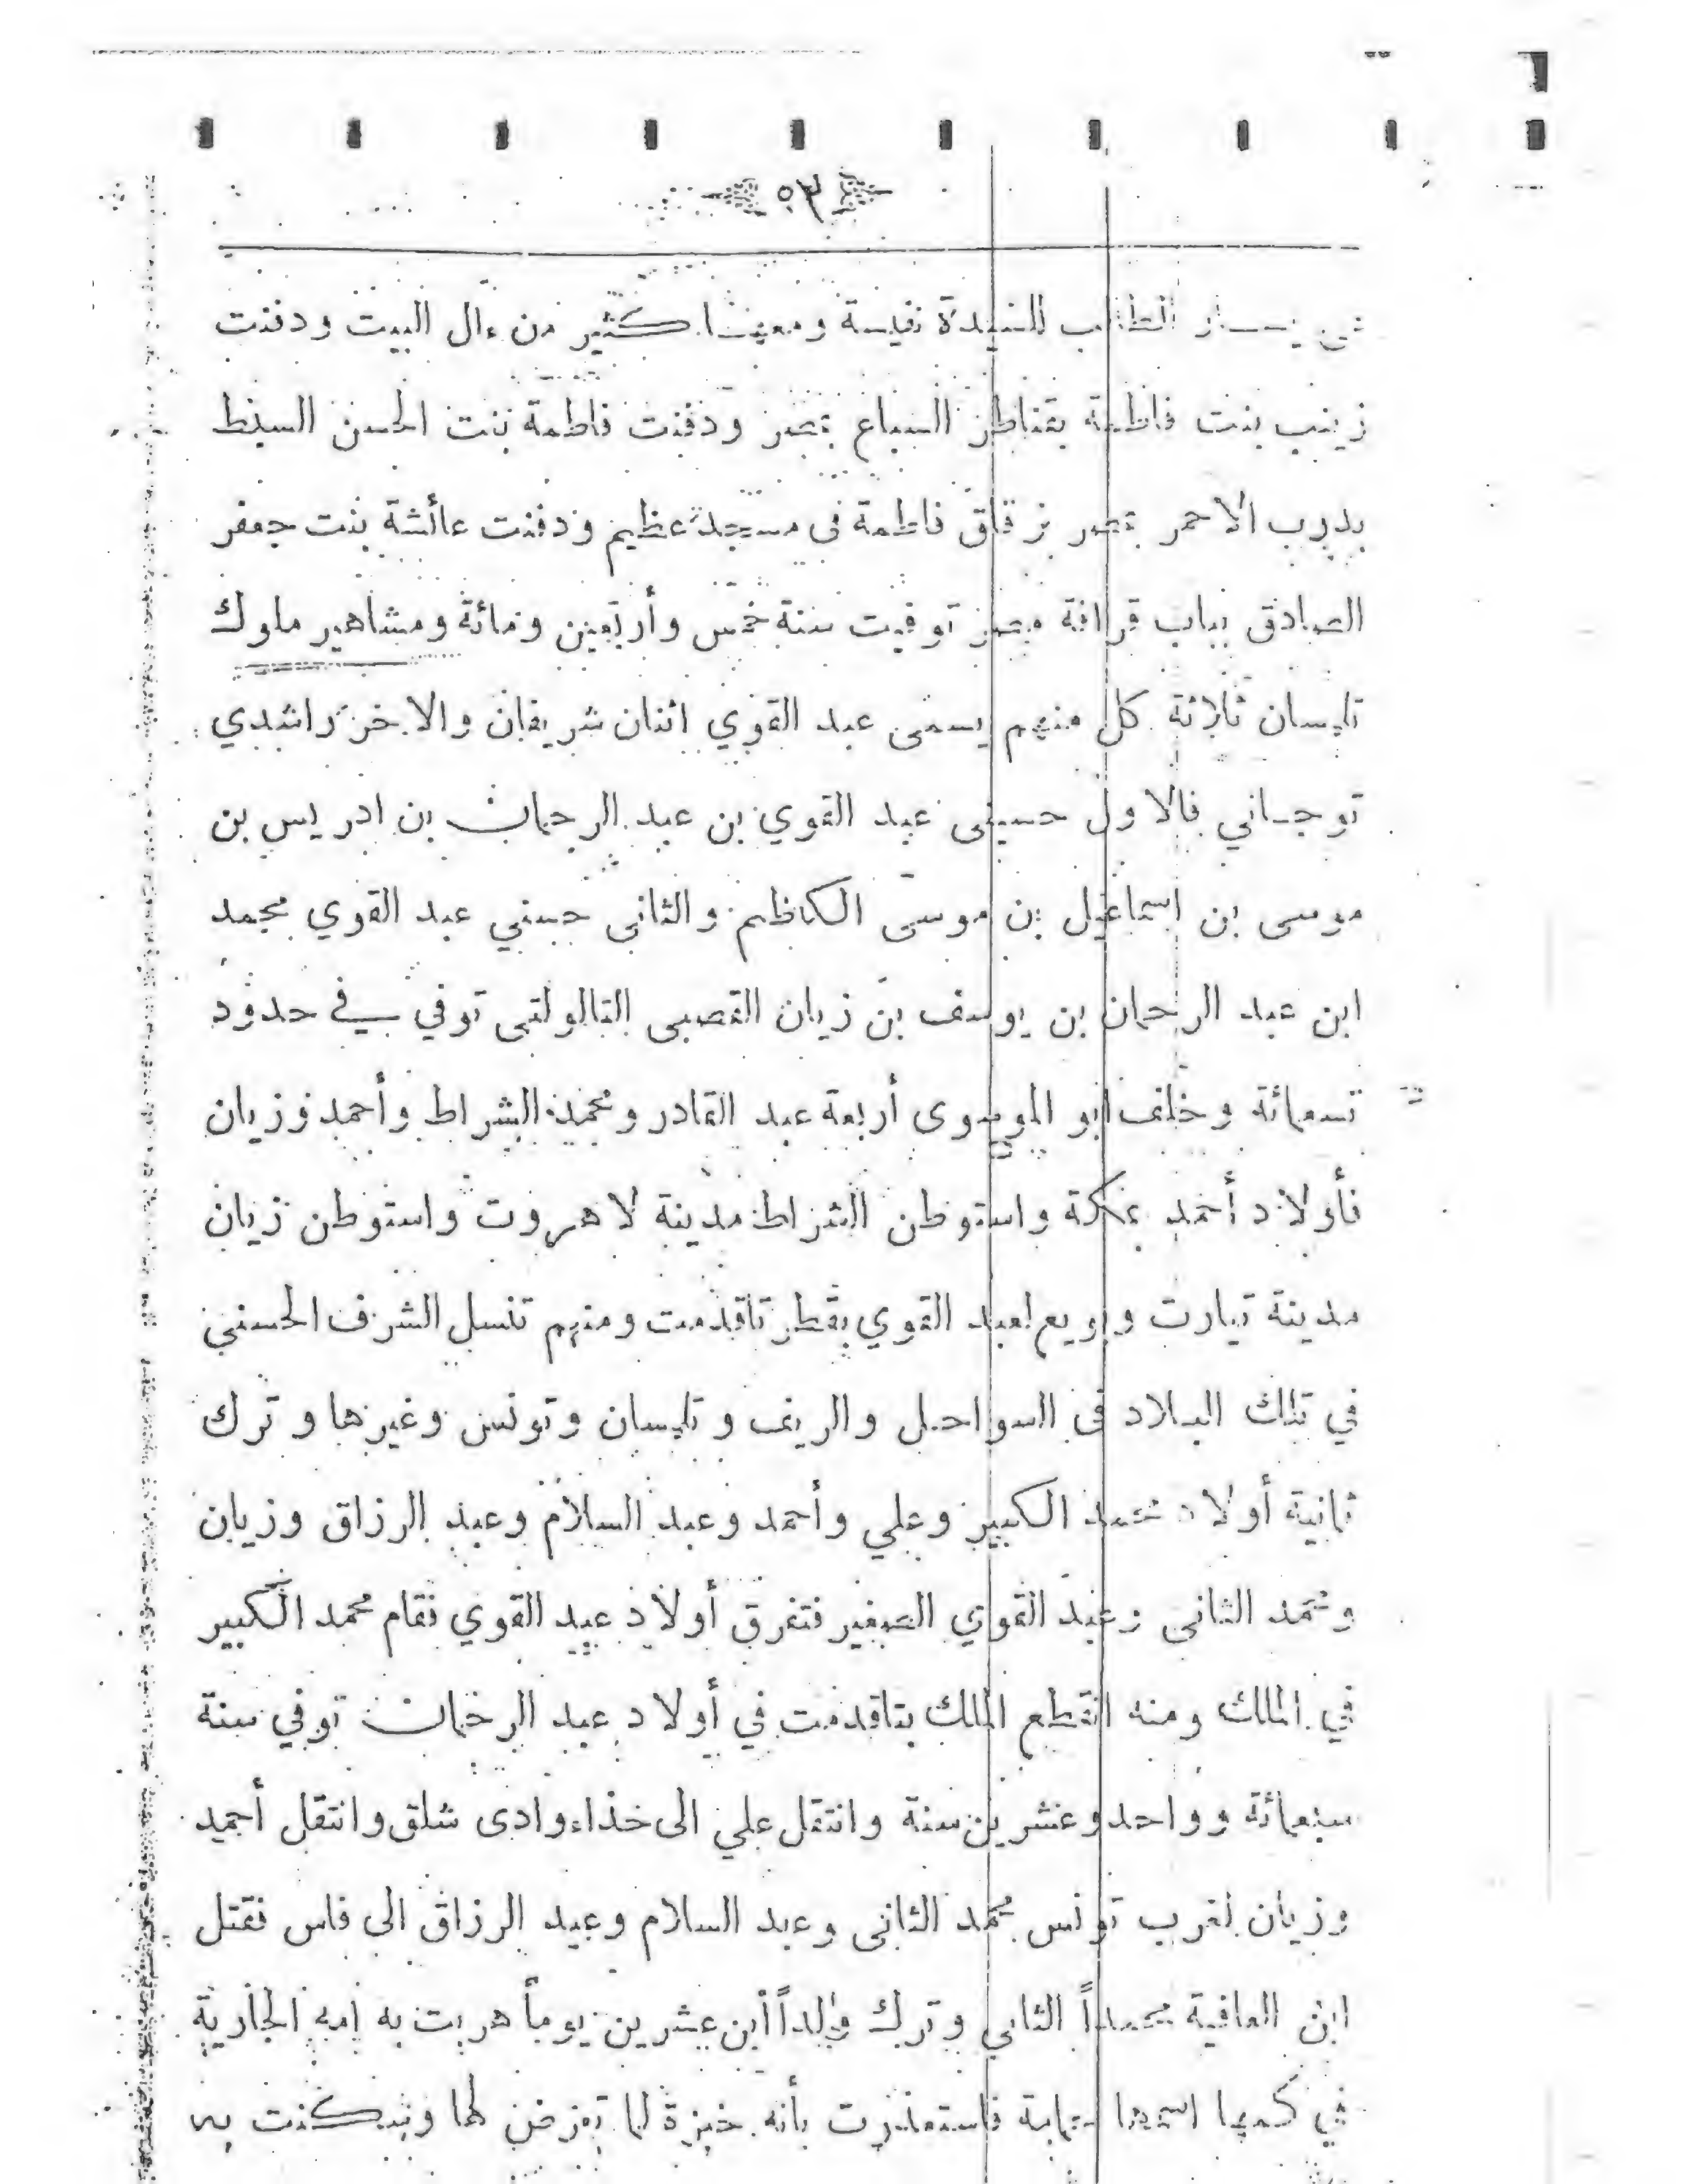 ٥٣
يسار الطالب للسيدة نفيسة ومعها كثير من ءال البيت ودفنت
زينب بنت فاطمة بقناطر السباع بمصر ودفنت فاطمة بنت الحسن السبط
بدرب الاحمر بمصر بزقاق فاطمة فى مسجد عظيم ودفنت عائشة بنت جعفر
الصادق بباب قرافة مصر توفيت سنة خمس وأربعين ومائة ومشاهير ملوك
تلمسان ثلاثة كل منهم يسمى عبد القوي اثنان شريفان والاخر راشدي
توجاني فالاول حسينى عبد القوي بن عبد الرحمان بن ادريس بن
موسى بن اسماعيل بن موسى الكاظم والثانى حسني عبد القوي محمد
ابن عبد الرحمان بن يوسف بن زيان القصبى التالولتى توفي في حدود
تسعمائة وخلف أبو الموسوى أربعة عبد القادر ومحمد الشراط وأحمد وزيان
فأولاد أحمد بمكة واستوطن الشراط مدينة لاهروت واستوطن زيان
مدينة تيارت وبويع لعبد القوي بقطر تاقدمت ومنهم تنسل الشرف الحسني
في تلك البلاد فى السواحل والريف وتلمسان وتونس وغيرها وترك
ثمانية أولاد محمد الكبير وعلي وأحمد وعبد السلام وعبد الرزاق وزيان
ومحمد الثانى وعبد القوي الصغير فتفرق أولاد عبد القوي فقام محمد الكبير
في الملك ومنه انقطع الملك بتاقدمت في أولاد عبد الرحمان توفي سنة
سبعمائة وواحد وعشرين سنة وانتقل علي الى حذاء وادى شلق وانتقل أحمد
وزيان لغرب تونس محمد الثانى وعبد السلام وعبد الرزاق الى فاس فقتل
ابن العافية محمداً الثانى وترك ولداً أبن عشرين يوماً هربت به امه الجارية
في كمها اسمها فاستعذرت بأنه خبزة لما تعرض لها وسكنت به